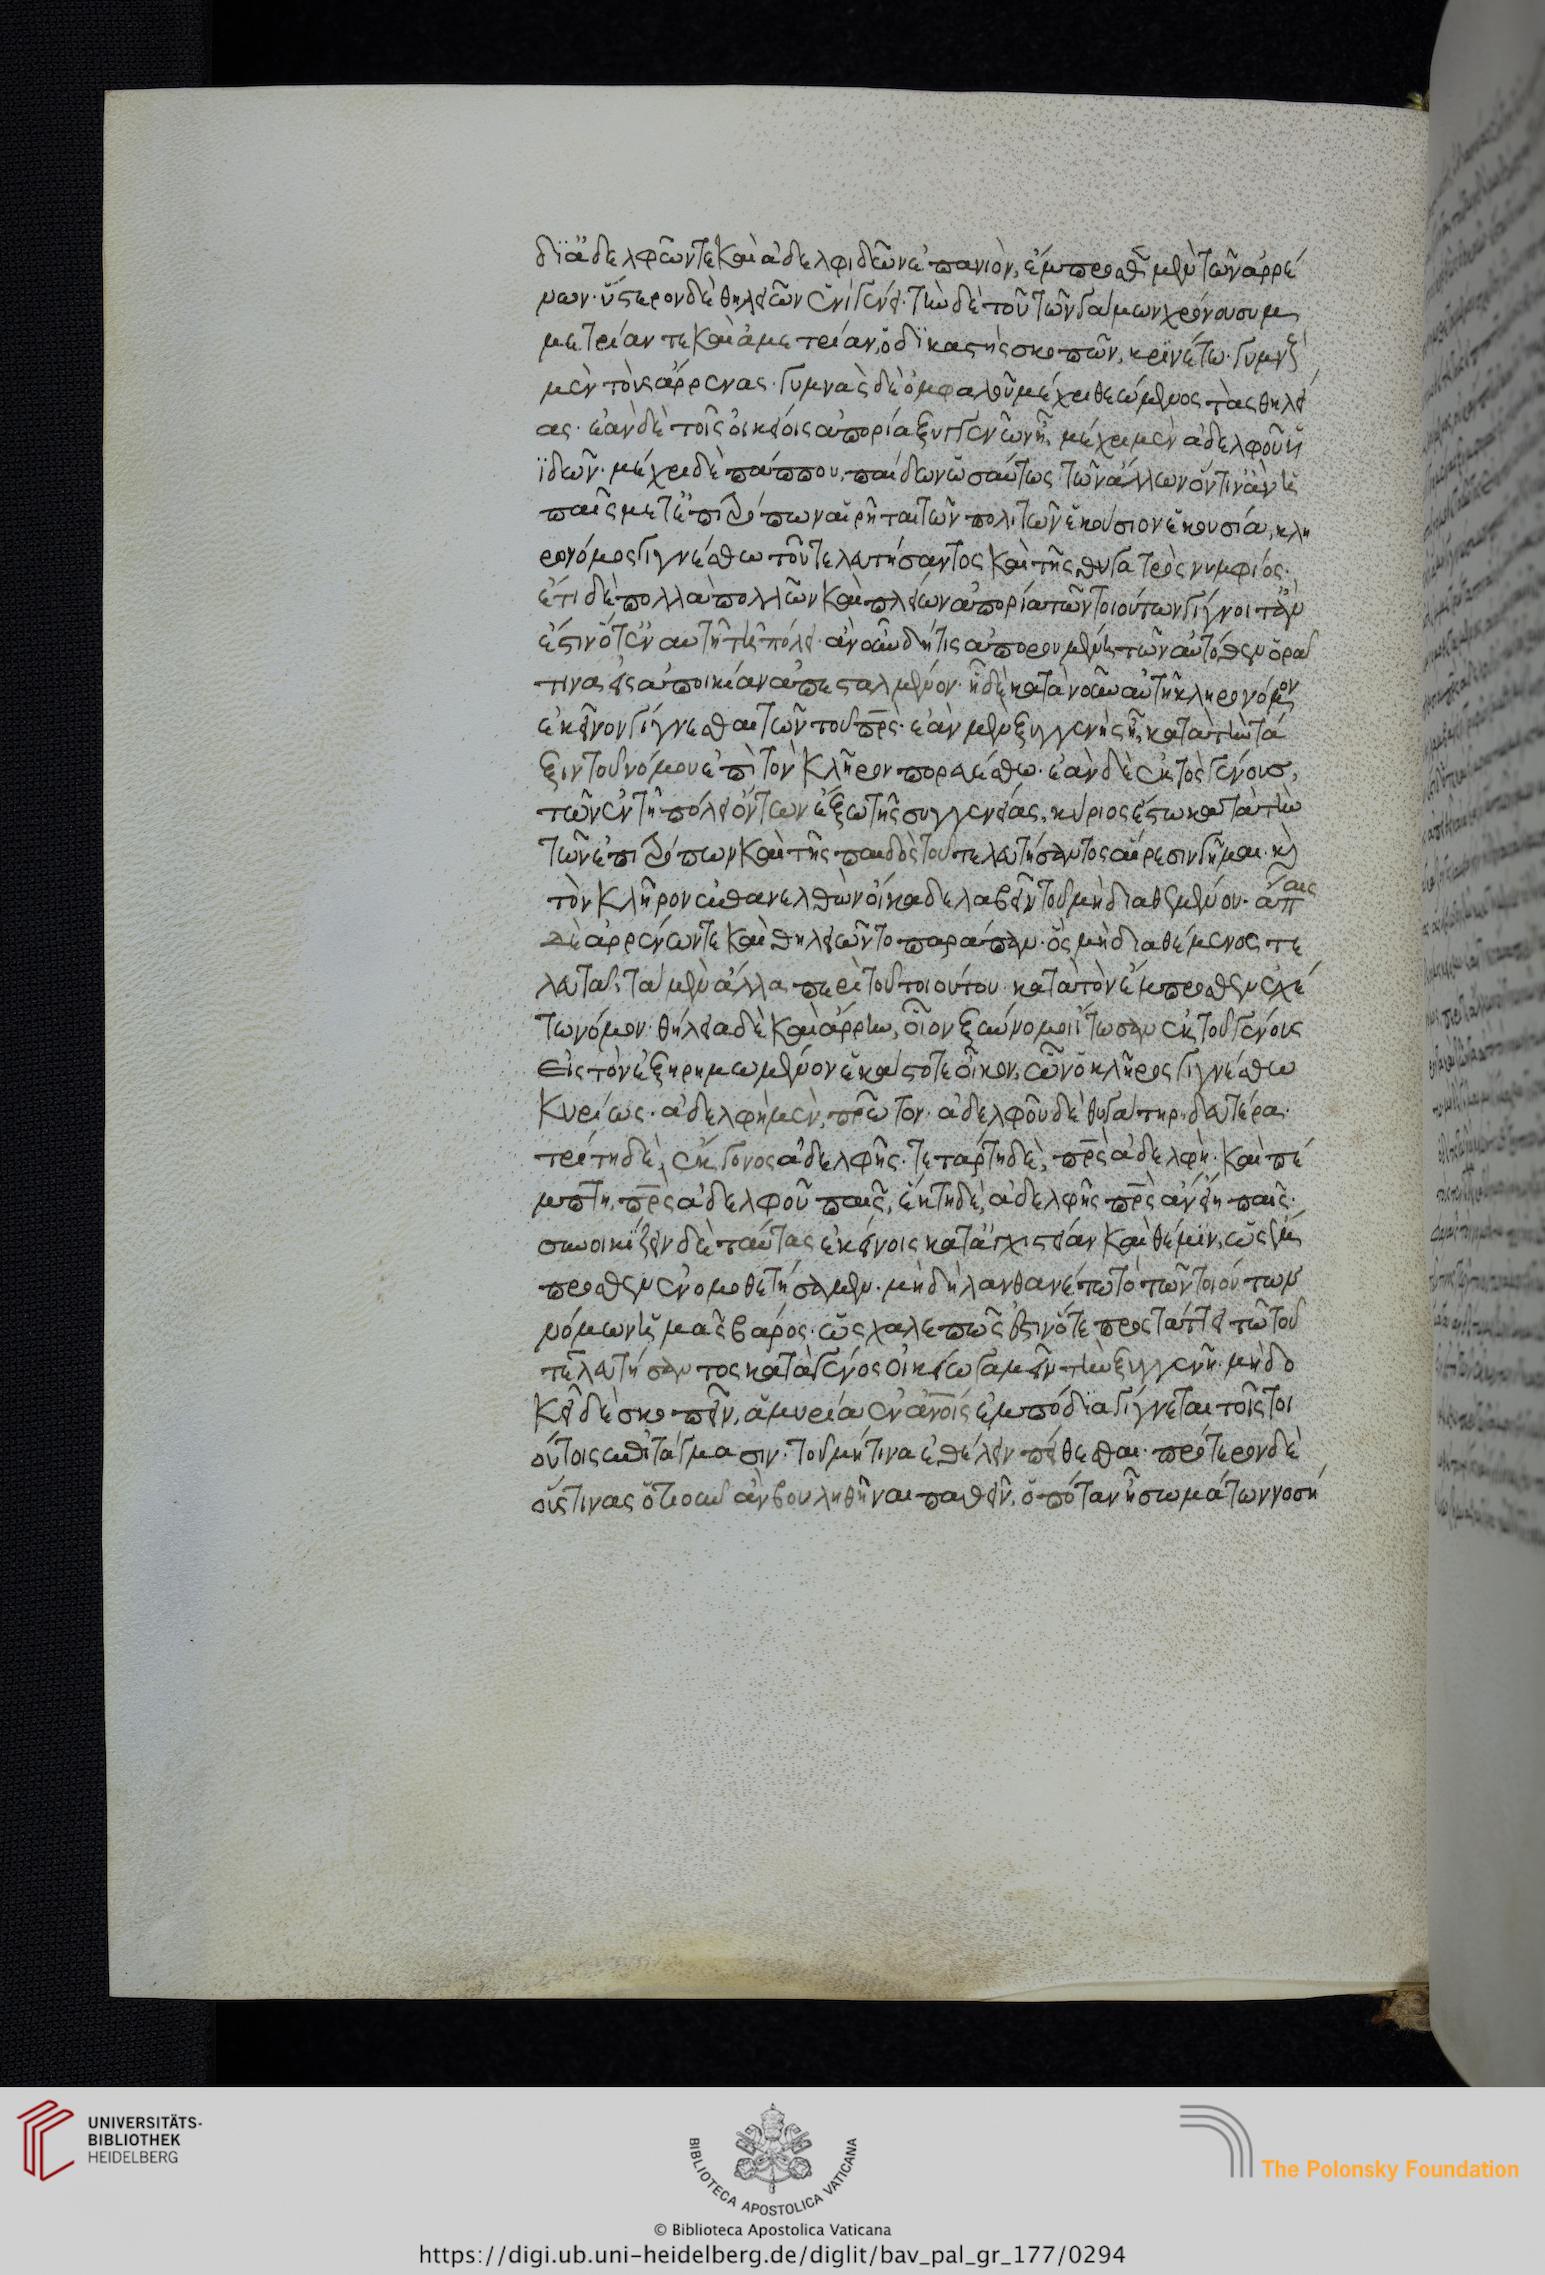 δι' ἀδελφῶν τε καὶ ἀδελφιδῶν ἐπανιὸν, ἔμπροσθε μὲν τῶν ἀρρέ
νων· ὕστερον δὲ θηλειῶν ἑνὶ γένει· τὴν δὲ τοῦ τῶν γάμων χρόνου συμ
μετρίαν τε καὶ ἀμετρίαν, ὁ δικαστὴς σκοπῶν, κρινέτω· γυμνοὺς
μὲν τοὺς ἄρρενας· γυμνὰς δὲ ὀμφαλοῦ μέχρι θεώμενος τὰς θηλεί
ας· ἐὰν δὲ τοῖς οἰκείοις ἀπορία ξυγγενῶν ᾖ, μέχρι μὲν ἀδελφοῦ υἱ
ϊδῶν· μέχρι δὲ πάππου, παίδων ὡσαύτως τῶν ἄλλων ὅντιν' ἂν ἡ
παῖς μετ' ἐπιτρόπων αἱρῆται τῶν πολιτῶν ἑκούσιον ἑκουσία, κλη
ρονόμος γιγνέσθω τοῦ τελευτήσαντος καὶ τῆς θυγατρὸς νυμφίος·
ἔτι δὲ πολλὰ πολλῶν καὶ πλείων ἀπορία τῶν τοιούτων γίγνοιτ' ἂν
ἔστιν ὅτ' ἐν αὐτῇ τῇ πόλει· ἂν οὖν δή τις ἀπορουμένη τῶν αὐτόθεν ὁρᾷ
τινα εἰς ἀποικίαν ἀπεσταλμένον· ᾖ δὲ κατὰ νοῦν αὐτῇ κληρονόμον
ἐκεῖνον γίγνεσθαι τῶν τοῦ πρς· ἐὰν μὲν ξυγγενὴς ᾖ, κατὰ τὴν τά
ξιν τοῦ νόμου ἐπὶ τὸν κλῆρον πορευέσθω· ἐὰν δὲ ἐκτὸς γένους,
τῶν ἐν τῇ πόλει ὄντων ἔξω τῆς συγγενείας, κύριος ἔστω κατὰ τὴν
τῶν ἐπιτρόπων καὶ τῆς παιδὸς τοῦ τελευτήσαντος αἵρεσιν γῆμαι· κ
τὸν κλῆρον ἐπανελθὼν οἴκαδε λαβεῖν τοῦ μὴ διαθεμένου· ἄπαις
δὲ ἀρρένων τε καὶ θηλειῶν τὸ παράπαν· ὃς μὴ διαθέμενος τε
λευτᾷ· τὰ μὲν ἄλλα περὶ τοῦ τοιούτου κατὰ τὸν ἔμπροσθεν ἐχέ
τω νόμον· θήλεια δὲ καὶ ἄρρην, οἷον ξύννομοι ἴτωσαν ἐκ τοῦ γένους
εἰς τὸν ἐξηρημωμένον ἑκάστοτε οἶκον, ὧν ὁ κλῆρος γιγνέσθω
κυρίως· ἀδελφὴ μὲν, πρῶτον· ἀδελφοῦ δὲ θυγάτηρ, δευτέρα·
τρίτη δὲ, ἔκγονος ἀδελφῆς· τετάρτη δὲ, πρς ἀδελφὴ· καὶ πέ
μπτη, πρς ἀδελφοῦ παῖς, ἕκτη δὲ, ἀδελφῆς πρς ἂν εἴη παῖς·
συνοικίζειν δὲ ταύτας ἐκείνοις κατ' ἀγχιστείαν καὶ θέμιν, ὡς ἔμ
προσθεν ἐνομοθετήσαμεν· μὴ δὴ λανθανέτω τὸ τῶν τοιούτων
νόμων ἡμᾶς βάρος· ὡς χαλεπῶς ἔστιν ὅτε προστάττει τῷ τοῦ
τελευτήσαντος κατὰ γένος οἰκείῳ γαμεῖν τὴν ξυγγενῆ· μὴ δο
κεῖ δὲ σκοπεῖν, ἃ μυρία ἐν ἀνοις ἐμπόδια γίγνεται τοῖς τοι
ούτοις ἐπιτάγμασιν· τοῦ μή τινα ἐθέλειν πείθεσθαι· πρότερον δὲ
οὕς τινας ὁτιοῦν ἂν βουληθῆναι παθεῖν, ὁπόταν ἢ σωμάτων νοσή
UNIVERSITÄTS-
BIBLIOTHEK
HEIDELBERG
BIBLIOTECA APOSTOLICA VATICANA
The Polonsky Foundation
© Biblioteca Apostolica Vaticana
https://digi.ub.uni-heidelberg.de/diglit/bav_pal_gr_177/0294